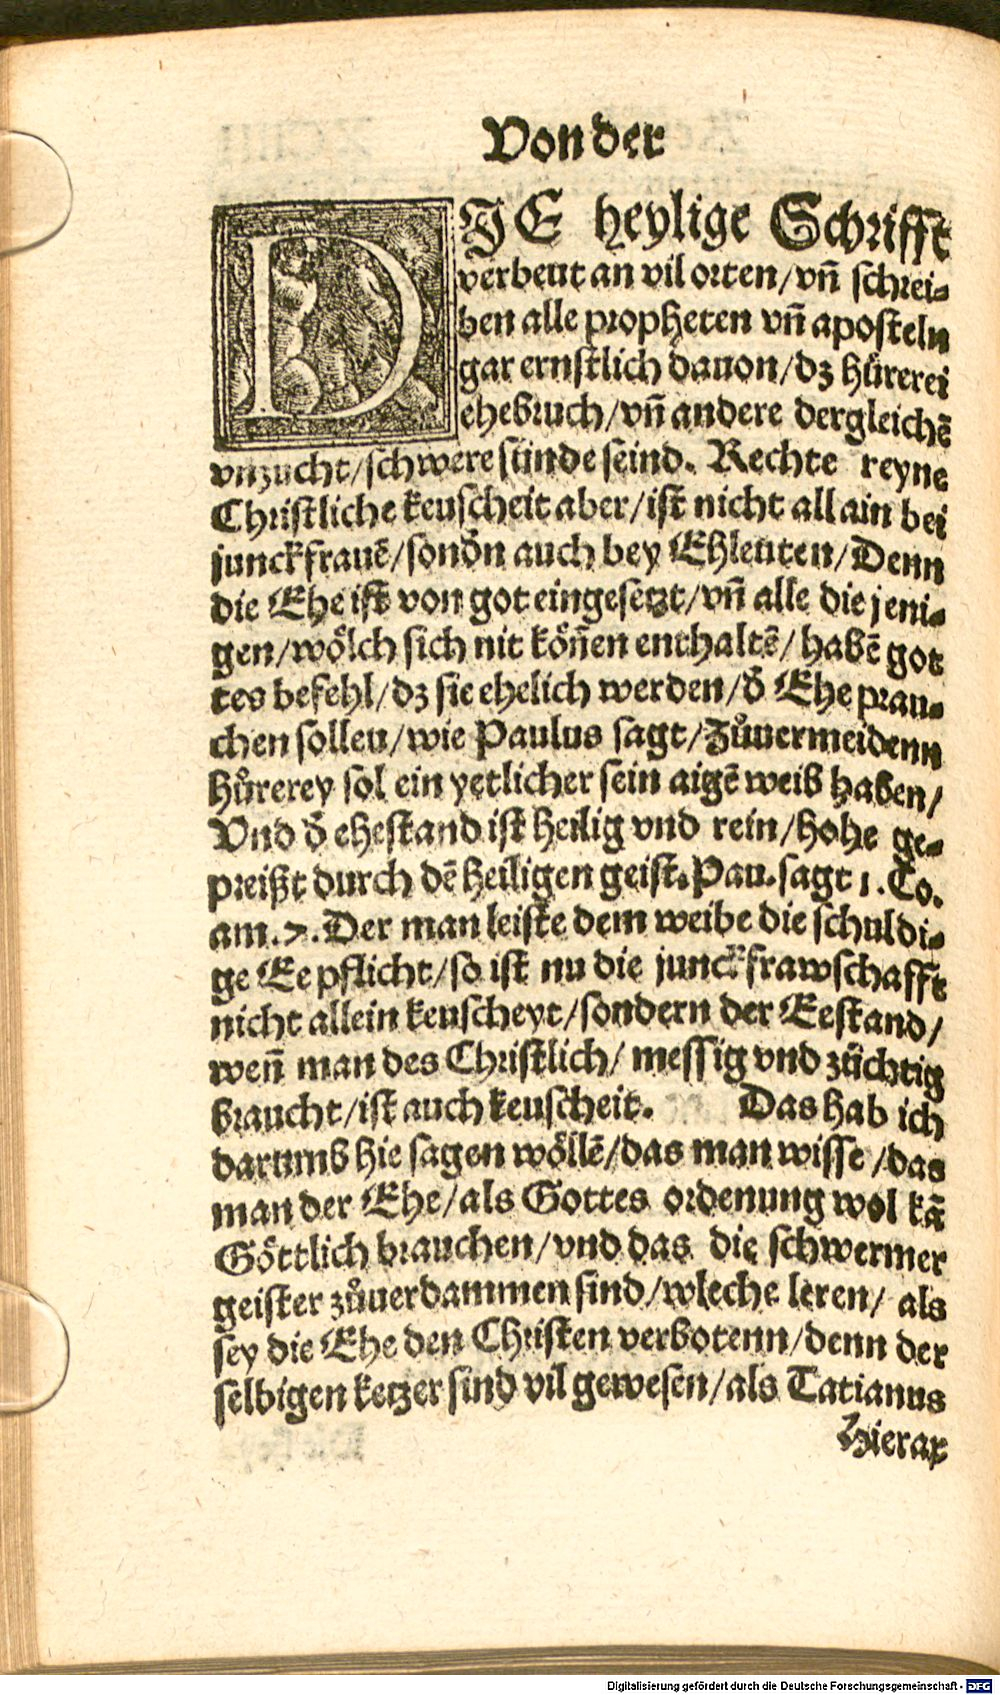 Von der
DJE heylige Schrifft
verbeut an vil orten/vñ schrei-
ben alle propheten vñ aposteln
gar ernstlich dauon/dz hůrerei
ehebruch/vñ andere dergleichē
vnzucht/schwere sünde seind. Rechte reyne
Christliche keuscheit aber/ist nicht all ain bei
junckfrauē/sonđn auch bey Ehleuten/Denn
die Ehe ist von got eingesetzt/vñ alle die jeni-
gen/wölch sich nit köñen enthaltē/habē got
tes befehl/dz sie ehelich werden/đ Ehe prau-
chen solleu/wie Paulus sagt/Zůuermeidenn
hůrerey sol ein yetlicher sein aigē weib haben/
Vnd đ ehestand ist heilig vnd rein/hohe ge-
preißt durch dē heiligen geist.Pau.sagt 1.Co.
am.7.Der man leiste dem weibe die schuldi-
ge Ee pflicht/so ist nu die junckfrawschafft
nicht allein keuscheyt/sondern der Eestand/
weñ man des Christlich/ messig vnd züchtig
braucht/ist auch keuscheit. Das hab ich
darumb hie sagen wöllē/das man wisse/das
man der Ehe/als Gottes ordenung wol kā
Göttlich brauchen/vnd das die schwermer
geister zůuerdammen sind/wleche leren/ als
sey die Ehe den Christen verbotenn/denn der
selbigen ketzer sind vil gewesen/als Tatianus
Hierax
Digitalisierung gefördert durch die Deutsche Forschungsgemeinschaft - DFG